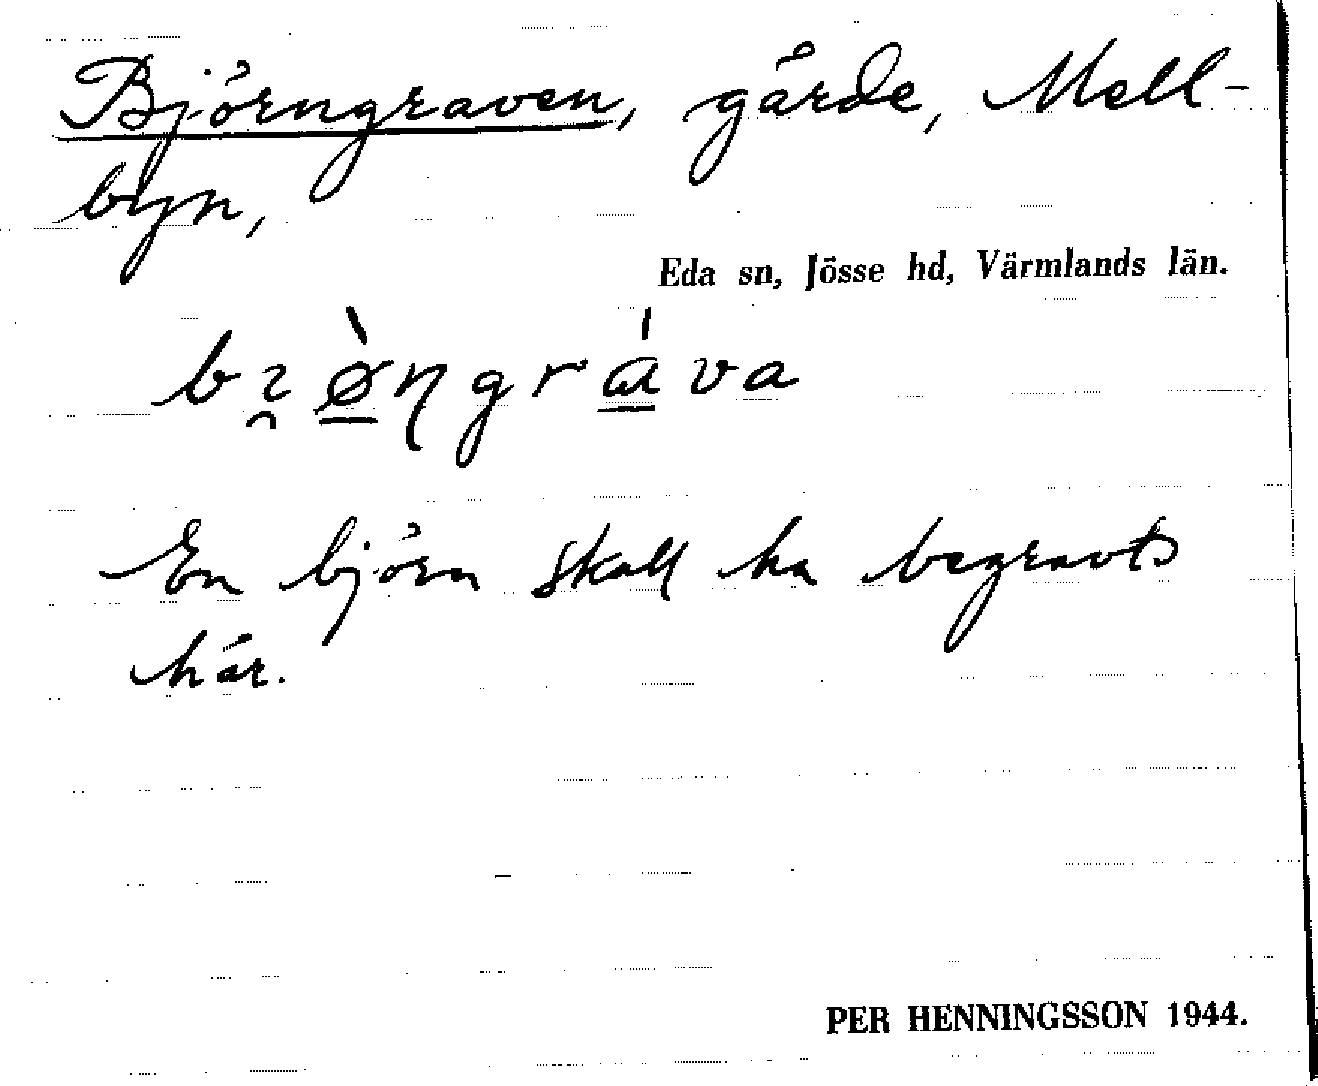 Björngraven, gärde, Mell-
byn,
Eda sn, Jösse hd, Värmlands län.
bɪ̯ø̀ŋgrɑ́va
En björn skall ha begravts
här.
PER HENNINGSSON 1944.